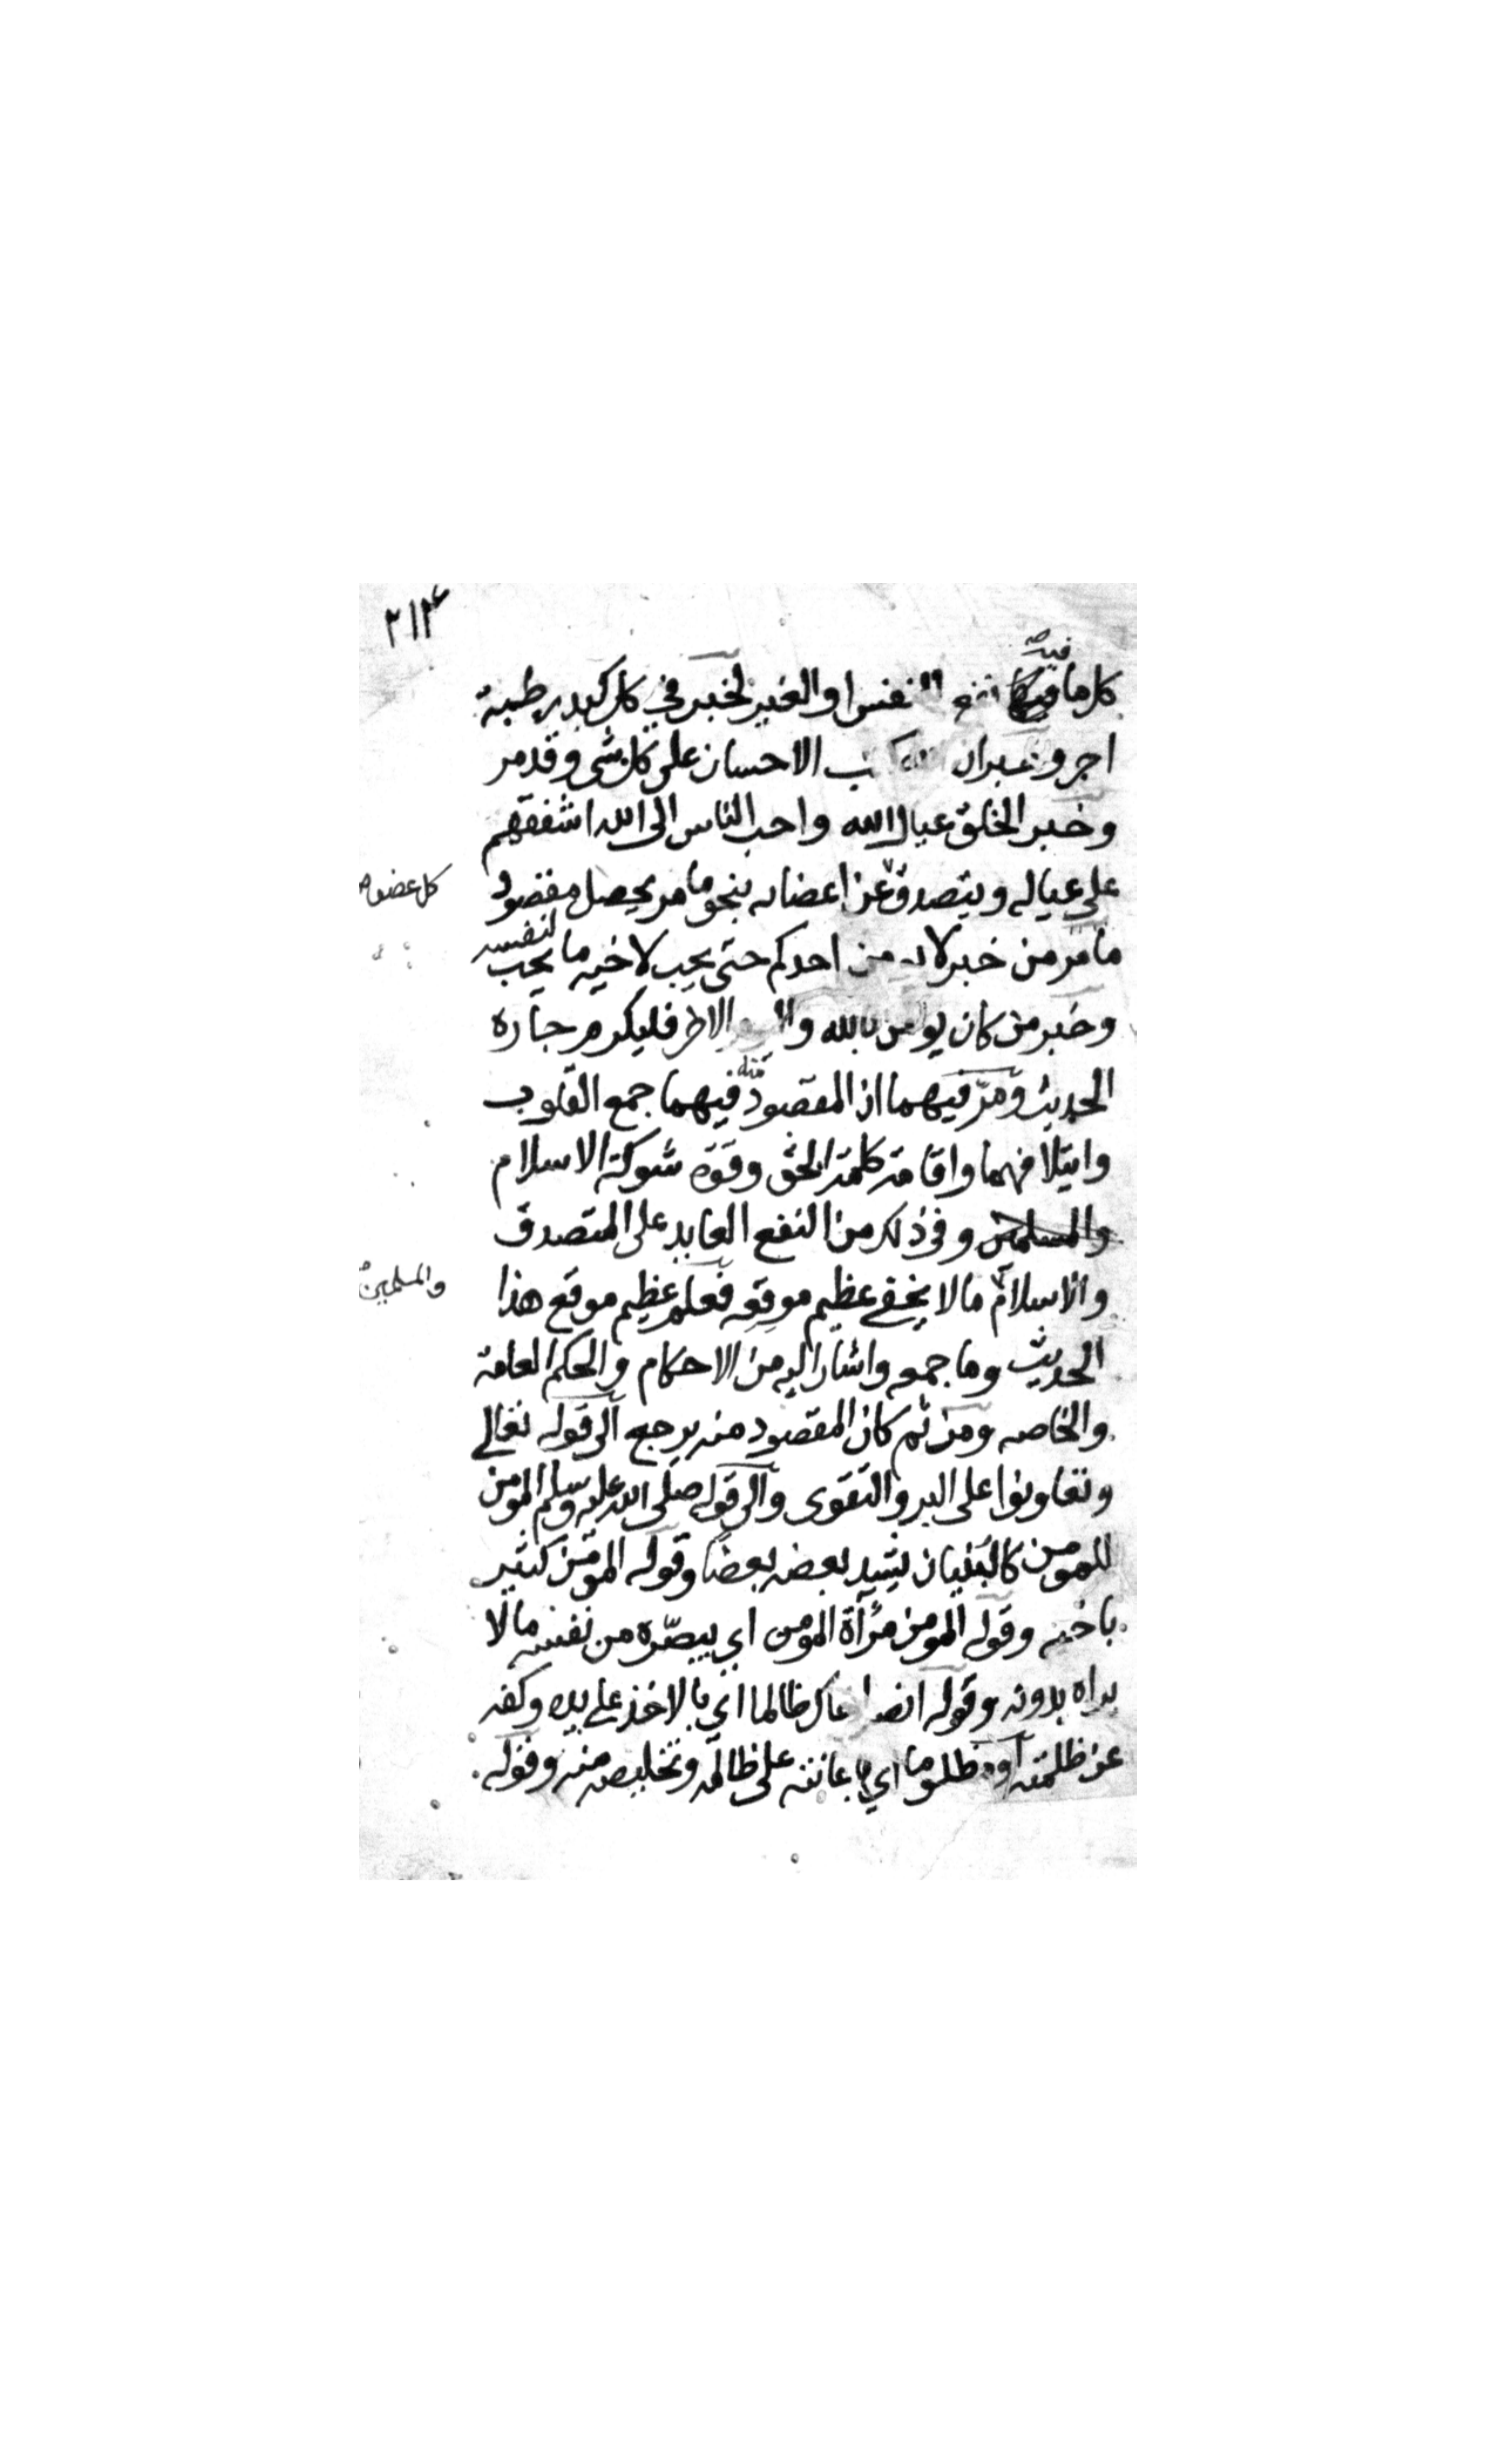 ٢١٣
فيه
كل ما نفع النفس او الغير لخبر في كل كبد رطبة
اجر وخبر ان الله كتب الاحسان على كل شى وقد مر
وخبر الخلق عيال الله واحب الناس الى الله اشفقهم
على عياله ويتصدق عن اعضائه بنحو ما مر يحصل مقصود
كل عضو
ما مر من خبر لا يومن احدكم حتى يحب لاخيه ما يحب لنفسه
وخبر من كان يومن بالله واليوم الاخر فليكرم جاره
الحديث ومرّ فيهما ان المقصود منه فيهما جمع القلوب
وايتلافهما واقامة كلمة الحق وقوة شوكة الاسلام
والمسلمين وفى ذلك من النفع العايد على المتصدق
والاسلام ما لا يخفى عظيم موقعه فعلم عظيم موقع هذا
والمسلمين
الحديث وما جمعه واشار اليه من الاحكام والحكم العامة
والخاصه ومن ثم كان المقصود منه يرجع الى قوله تعالى
وتعاونوا على البر والتقوى والى قوله صلى الله عليه وسلم المومن
للمومن كالبنيان يشيد بعضه بعضا وقوله المومن كثير
باخيه وقوله المومن مرآة المومن اي يبصّره من نفسه ما لا
يراه بدونه وقوله انصر اخاك ظالما اي بالاخذ على يده وكفه
عن ظلمته او مظلوما اي باعانته على ظالمه وتخليصه منه وقوله